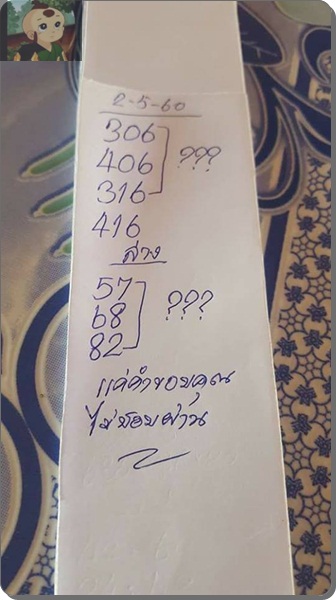 2-5-60
306
406 ???
316
416
ล่าง
57
68 ???
82
แค่คำขอบคุณ
ไม่ชอบผ่าน